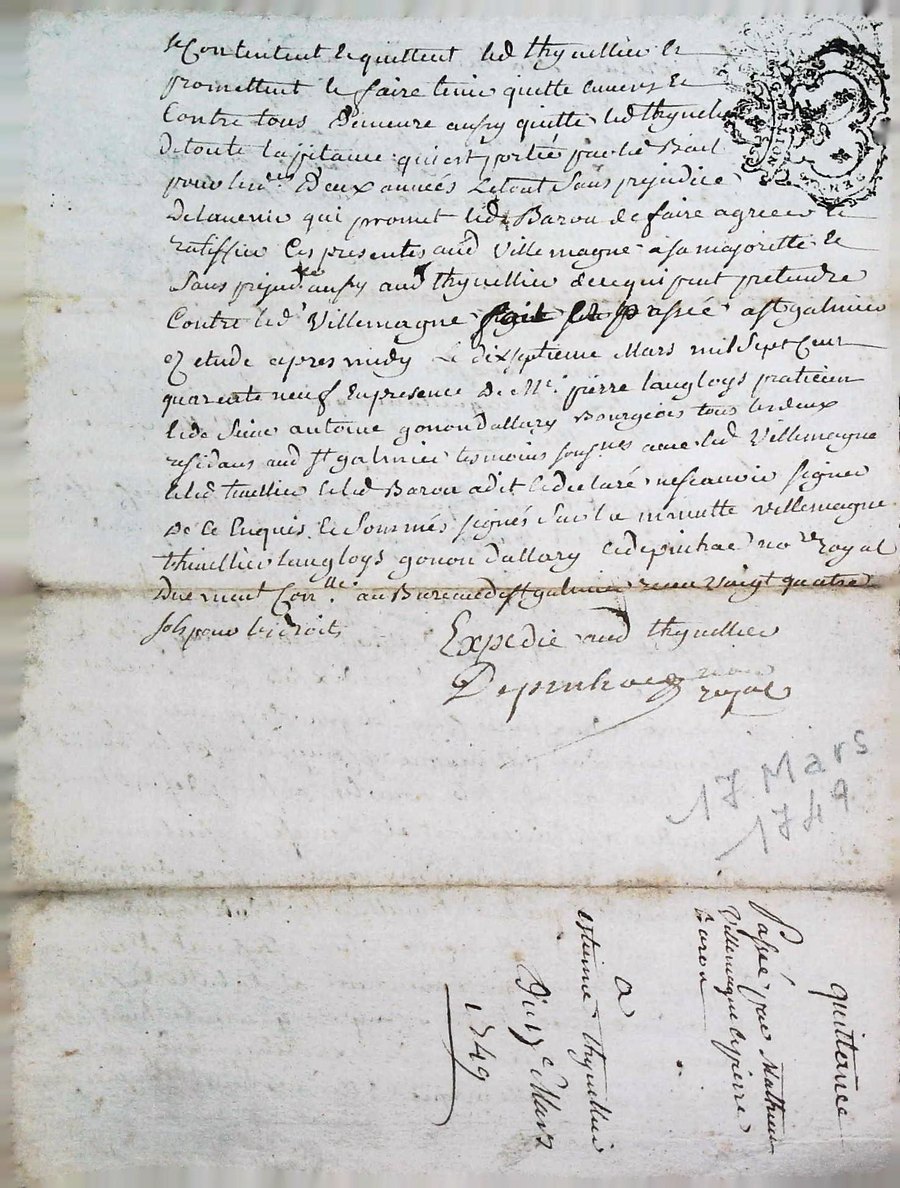 se Contentent et quittent led thyuellier et
promettent le faire tenir quitte envers et
Contre tous Demeure aussy quitte led thyuellier
De toute la pitance qui est portée par led Bail
pour lesd. Deux années Le tout Sans prejudice
De lavenir qui promet led Barou de faire agreer et
ratiffier Ces presentes aud Villemagne a sa majoritte et
Sans prejudice aussy aud thyuellier de ce qui peut pretendre
Contre led. Villemagne fait et passé a st galmier
etude apres midy Le dix septieme Mars mil Sept Cent
quarente neuf En presence De Me. pierre langloys praticien
et de Sieur antoine gonon dallary Bourgeois tous les deux
residans aud st galmier temoins sougnes avec led Villemagne
et led tuellier et led Barou a dit et declaré ne scavoir signer
De ce Enquis et Sommés signés Sur la minutte villemagne
thiuellier langloys gonon dallary et depinhac nore royal
Duement Conlle. au Bureau de st galmier receu vingt quatre
sols pour les droits
Expedie aud thyuellier
Depinhac nore
royal
17 Mars
1749
quittance
Passée par Mathieu
Villemagne et pierre
Barou
a
estienne thyuellier
Du 17e Mars
1749